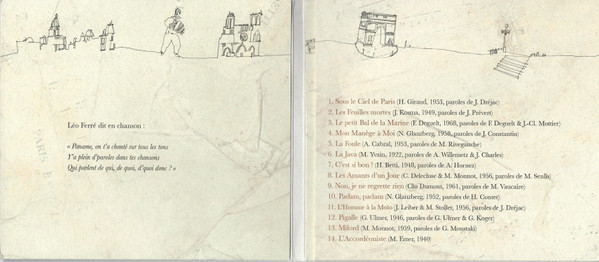 Léo Ferré dit en chanson :
« Paname, on t'a chanté sur tous les tons
Y'a plein d'paroles dans tes chansons
Qui parlent de qui, de quoi, d'quoi donc ? »
1. Sous le Ciel de Paris (H. Giraud, 1953, paroles de J. Dréjac)
2. Les Feuilles mortes (J. Kosma, 1949, paroles de J. Prévert)
3. Le petit Bal de la Marine (F. Deguelt, 1968, paroles de F. Deguelt & J.-Cl. Mottier)
4. Mon Manège à Moi (N. Glanzberg, 1958, paroles de J. Constantin)
5. La Foule (A. Cabral, 1953, paroles de M. Rivegauche)
6. La Java (M. Yvain, 1922, paroles de A. Willemetz & J. Charles)
7. C'est si bon ! (H. Betti, 1948, paroles de A. Hornez)
8. Les Amants d'un Jour (C. Delecluse & M. Monnot, 1956, paroles de M. Senlis)
9. Non, je ne regrette rien (Chs Dumont, 1961, paroles de M. Vaucaire)
10. Padam, padam (N. Glanzberg, 1952, paroles de H. Contet)
11. L'Homme à la Moto (J. Leiber & M. Stoller, 1956, paroles de J. Dréjac)
12. Pigalle (G. Ulmer, 1946, paroles de G. Ulmer & G. Koger)
13. Milord (M. Monnot, 1959, paroles de G. Moustaki)
14. L'Accordéoniste (M. Emer, 1940)